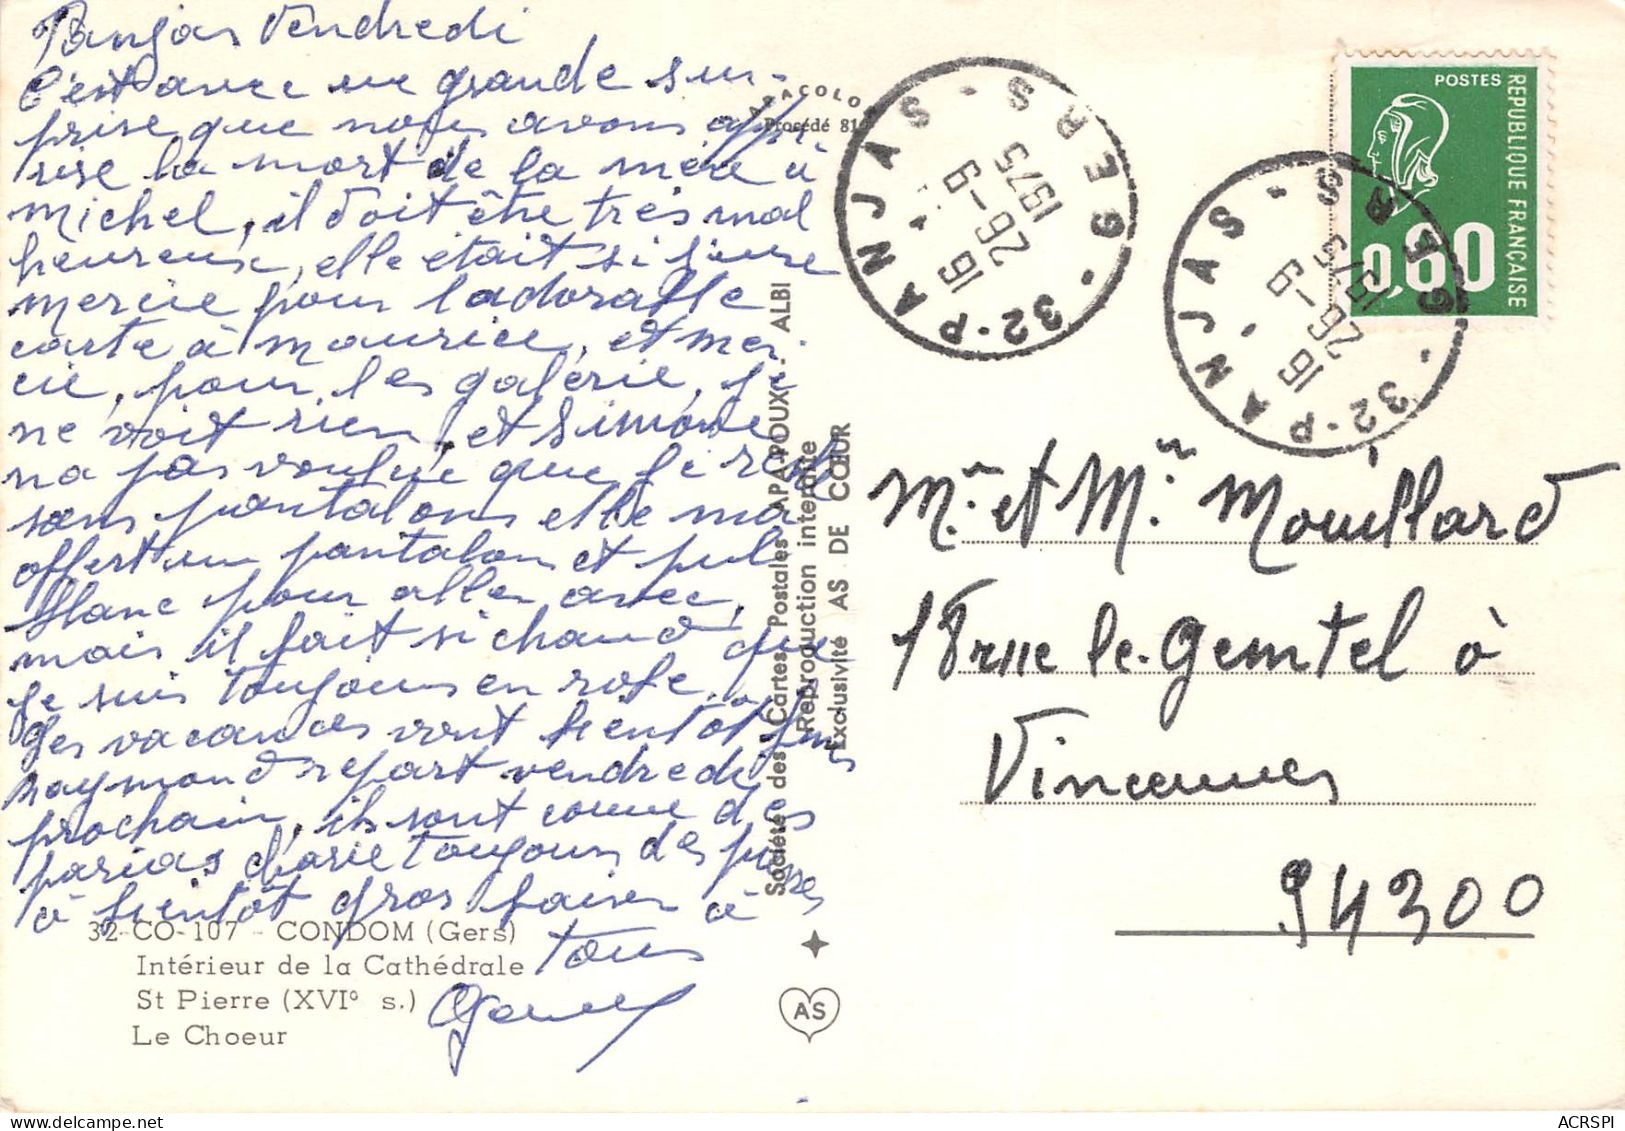 Panjas Vendredi
C'est avec une grande sur-
prise que nous avons app
rise la mort de la mère à
michel, il doit être très mal
heureux, elle était si jeune
mercie pour l'adorable
carte à maurice, et mer-
cie, pour les galerie, je
ne voit rien, et Simone
na pas voulue que je reste
sans pantalons elle ma
offert un pantalon et pull
blanc pour aller avec,
mais il fait si chaud que
je suis toujours en robe,
les vacances vont bientôt finir
Raymond repart vendredi
prochain, ils sont comme des
parias toujours des
à bientôt gros baiser à
tous
32-CO-107 - CONDOM (Gers)
Intérieur de la Cathédrale
St Pierre (XVIº s.)
Le Choeur
APACOLO
Procédé 81
Société des Cartes Postales APA-POUX - ALBI
Reproduction interdite
Exclusivité AS DE CŒUR
AS
32-PANJAS - GERS -
16 H
26-9
1975
32-PANJAS - GERS -
16 H
26-9
1975
POSTES
REPUBLIQUE FRANÇAISE
0,60
Mr. et Mr. Mouillard
18 rue le Gemtel à
Vincennes
94300
ACRSPI